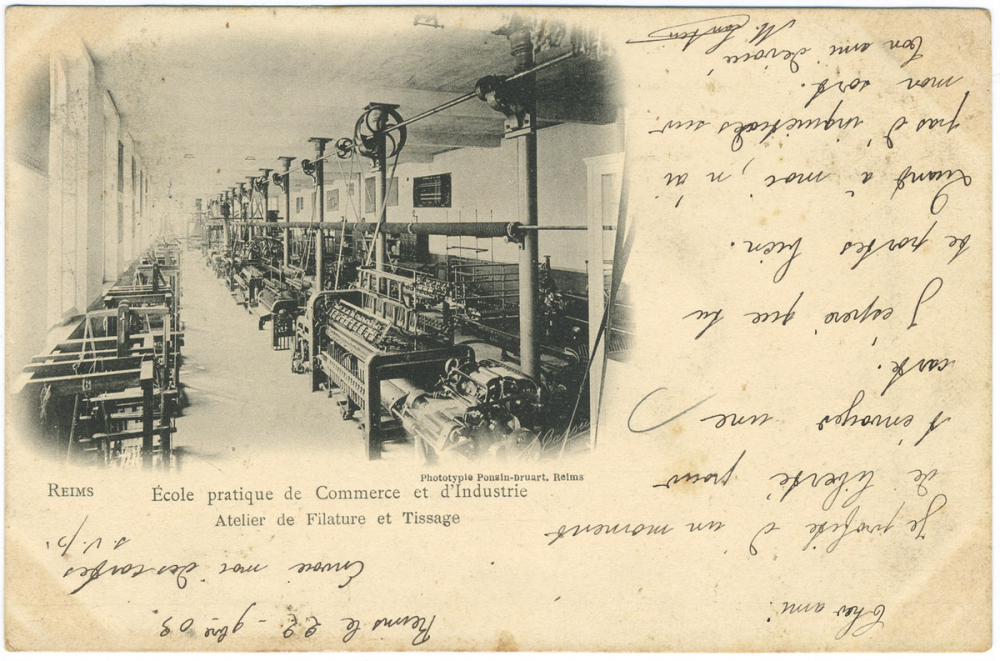 Phototypie Ponsin-Druart, Reims
REIMS École pratique de Commerce et d'Industrie
Atelier de Filature et Tissage
Reims le 22 - 9bre 03
Cher ami.
Je profite d'un moment
de liberté pour
t'envoyer une
carte.
J'espère que tu
te portes bien.
Quand à moi, n'ai
pas d'inquiétudes sur
mon sort.
Ton ami dévoué
Envoie moi des cartes
s.v.p.